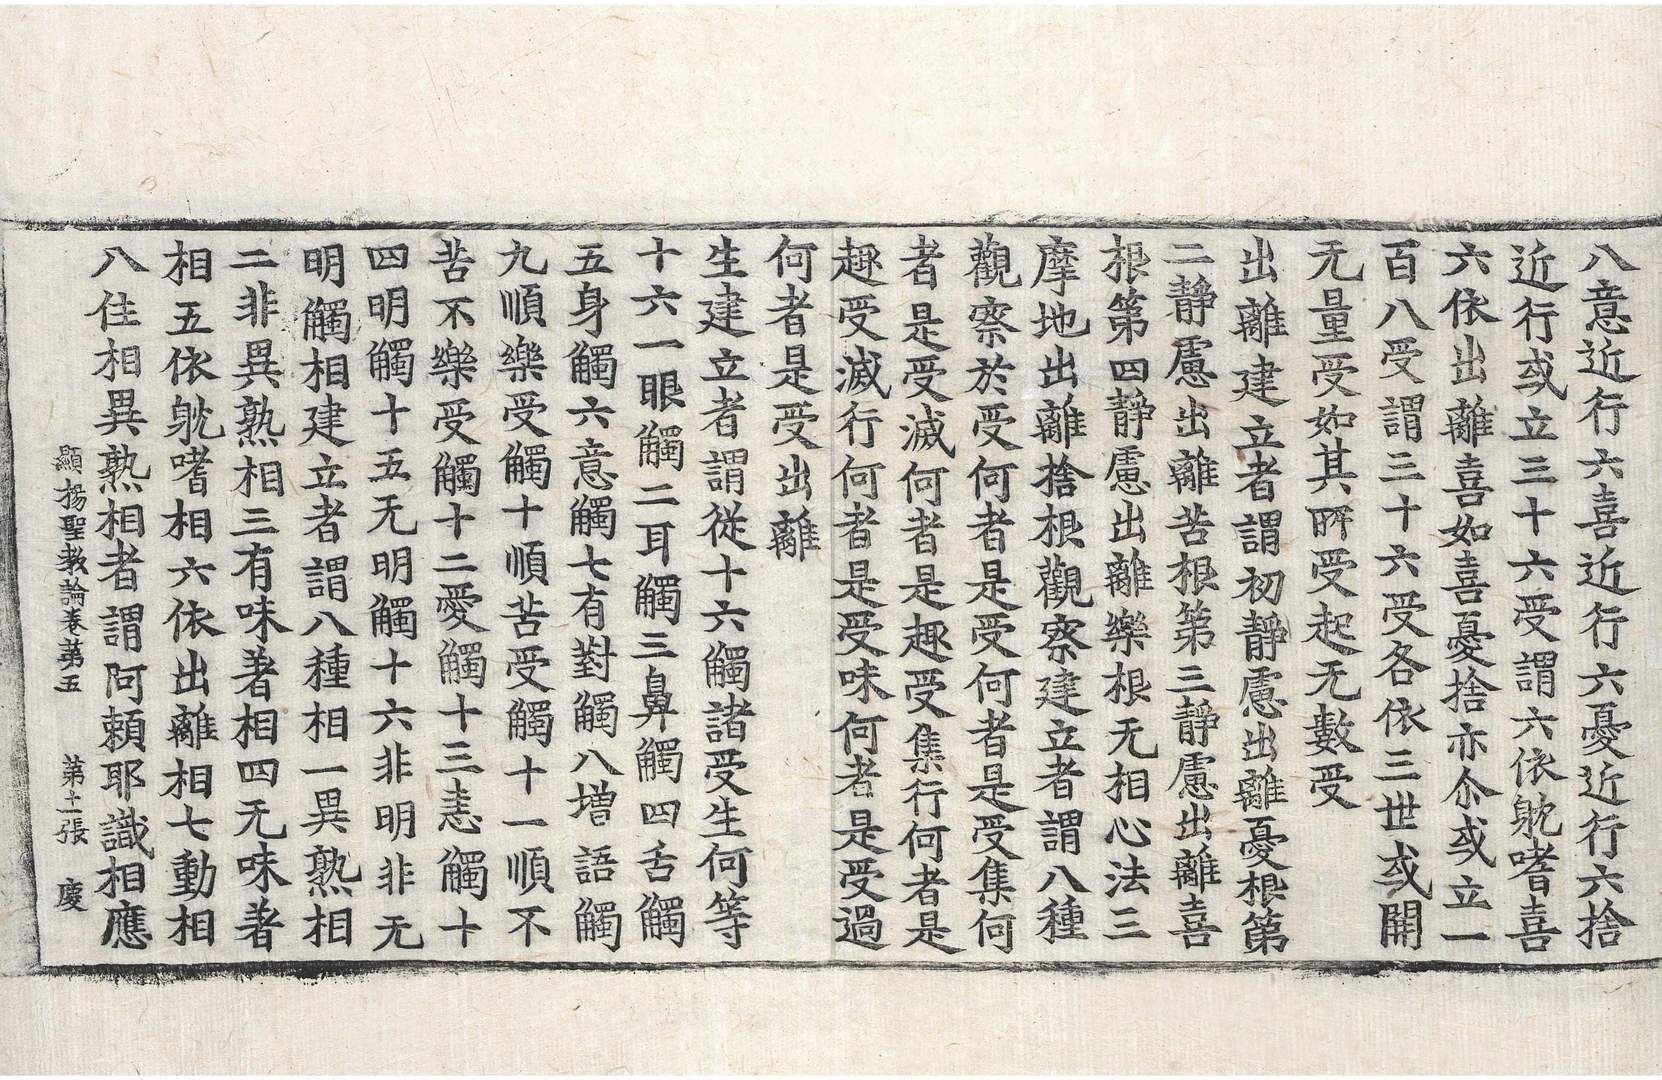 八意近行六喜近行六憂近行六捨
近行或立三十六受謂六依躭嗜喜
六依出離喜如喜憂捨亦尒或立一
百八受謂三十六受各依三世或開
无量受如其所受起无數受
出離建立者謂初靜慮出離憂根第
二靜慮出離苦根第三靜慮出離喜
根第四靜慮出離樂根无相心法三
摩地出離捨根觀察建立者謂八種
觀察於受何者是受何者是受集何
者是受滅何者是趣受集行何者是
趣受滅行何者是受味何者是受過
何者是受出離
生建立者謂從十六觸諸受生何等
十六一眼觸二耳觸三鼻觸四舌觸
五身觸六意觸七有對觸八增語觸
九順樂受觸十順苦受觸十一順不
苦不樂受觸十二愛觸十三恚觸十
四明觸十五无明觸十六非明非无
明觸相建立者謂八種相一異熟相
二非異熟相三有味著相四无味著
相五依躭嗜相六依出離相七動相
八住相異熟相者謂阿賴耶識相應
顯揚聖教論卷苐五 苐十一張 慶